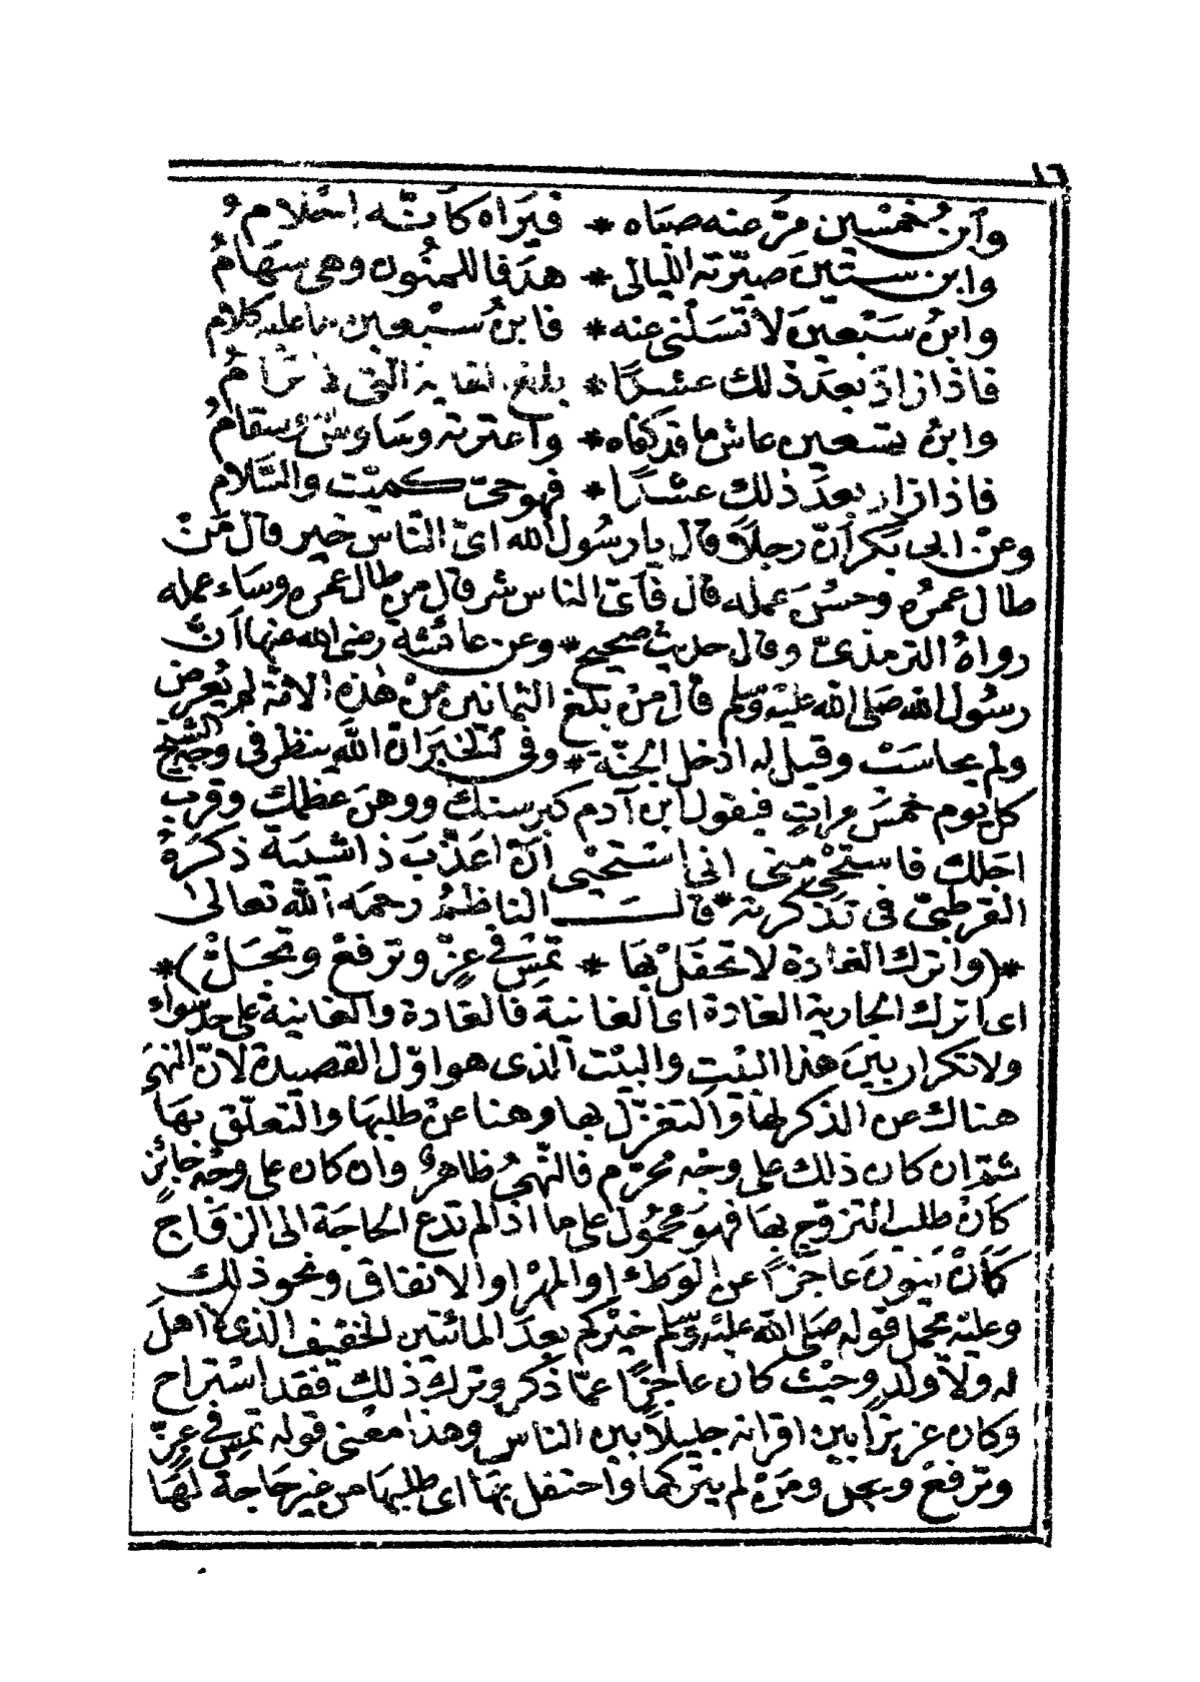 ١٦
وابنُ خمْسين مرّ عنه صباه * فيَراه كأنّه احْلامُ
وابن ستّينَ صيّرته الليالى * هدَفا للمنُون وهى سهَامُ
وابنُ سَبْعينَ لاَتسَلْنى عنه * فابنُ سبْعين ما عليه كلام
فاذا زادَ بعدَ ذلك عشرًا * بلغ الغاية التى
وابنُ تسعين عاش ما قد كفاه * واعترته وسَاوسٌ وسقامُ
فاذا زاد بعدَ ذلك عشرًا * فهو حىّ كميّت والسَّلام
وعنْ ابى بكر أنّ رجلاً قال يا رسُول الله اىّ النّاس خير قال مَنْ
طال عمرُه وحسُنَ عمله قال فأىّ الناس شر قال من طال عمره وسَاء عمله
رواهُ الترمذىّ وقال حديث صحيح * وعن عائشة رضى الله عنها اَنّ
رسُول الله صَلى الله عليْه وسَلم قال منْ بلغ الثمانين منْ هذه الامّة لم يُعرض
ولم يحاسَبْ وقيل له ادخل الجنّة * وفى الخبَر انّ الله ينظر فى وجه الشيخ
كل يوم خمسَ مراتٍ فيقول ابن آدم كبر سنك ووهنَ عظمك وقرب
اجَلك فاستحْى منى انى اسْتَحْيى اَنْ اعَذّبَ ذا شيبَة ذكرَهُ
القرطبىّ فى تذكرته * قالَ الناظمُ رحمَه الله تعالى
* (واترك الغادة لا تحفلْ بهَا * تمسِ فى عزّ وترفعْ وتجَلْ) *
اى اترك الجارية الغادة اى الغانية فالغادة والغانية على حدّ سواء
ولا تكرار بينَ هذا البيْتِ والبيْت الذى هو اوّل القصيدة لانّ النهىَ
هناك عن الذكر لهَا والتغزّل بها وهنا عنْ طلبهَا والتعلّق بهَا
ثمّ ان كان ذلك على وجْه محرّم فالنّهىُ ظاهرٌ وان كان على وجْه جائزٍ
كانْ طلب التزوّج بهَا فهوَ محمُول على ما اذا لم تدع الحاجَة الى الزوَاج
كأنْ يكونَ عاجزًا عن الوَطء او المهْر او الانفاق ونحو ذلك
وعليْه يحمل قوله صَلى الله عليْه وسَلم خيْركم بعدَ المائتين الخفيف الذى لا اهلَ
له ولاَ ولد وحيْث كان عاجزًا عمّا ذكر وترك ذلك فقد اسْتراح
وكان عزيزاً بين اقرانه جليلاً بين الناس وهذا معْنى قوله تمس فى عزّ
وترفعْ وتجل ومَنْ لم يتركها واحتفل بهَا اى طلبهَا من غير حَاجة لهَا